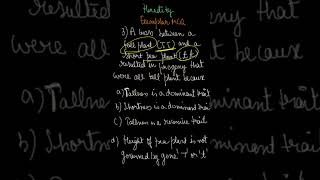 Heredity
Exemplar MCQ
3) A cross between a
tall plant (TT) and a
short pea plant (tt)
resulted in progeny that
were all tall plant because
a) Tallness is a dominant trait
b) Shortness is a dominant trait
c) Tallness is a recessive trait
d) Height of pea plant is not
governed by gene 'T' or 't'